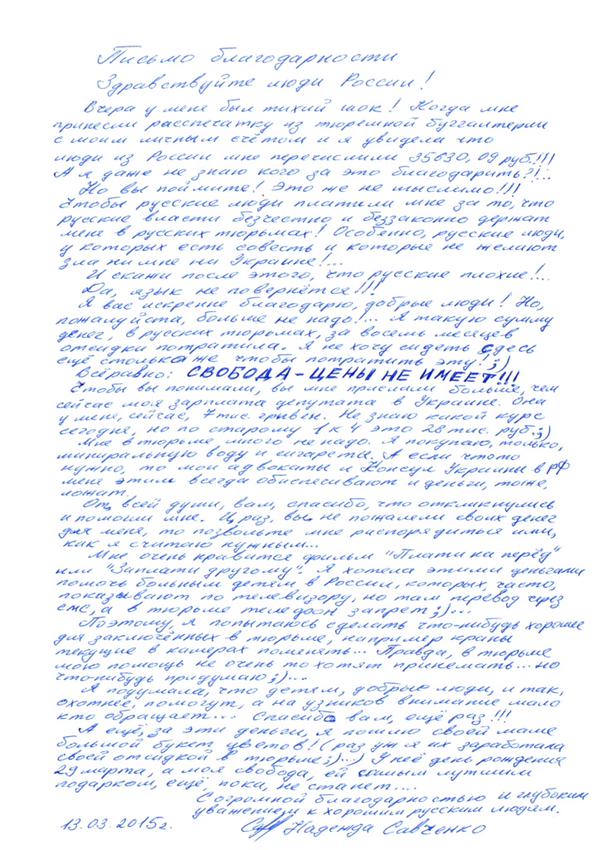 Письмо благодарности
Здравствуйте люди России!
Вчера у мене был тихий шок! Когда мне
принесли распечатку из тюремной бухгалтерии
с моим личным счётом и я увидела что
люди из России мне перечислили 35630,09 руб.!!!
А я даже не знаю кого за это благодарить?!..
Но вы поймите! Это же не мыслимо!!!
Чтобы русские люди платили мне за то, что
русские власти безчестно и беззаконно держат
мене в русских тюрьмах! Особенно, русские люди,
у которых есть совесть и которые не желают
зла ни мне ни Украине!...
И скажи после этого, что русские плохие!...
Да, язык не повернётся!!!
Я вас искренне благодарю, добрые люди! Но,
пожалуйста, больше не надо!... Я такую сумму
денег, в русских тюрьмах, за восемь месяцев
отсидки потратила. Я не хочу сидеть здесь
ещё столько же чтобы потратить эту! ;)
Всёравно: СВОБОДА-ЦЕНЫ НЕ ИМЕЕТ!!!
Чтобы вы понимали, вы мне прислали больше, чем
сейчас моя зарплата депутата в Украине. Она
у мене, сейчас, 7 тис. гривен. Не знаю какой курс
сегодня, но по старому 1 к 4 это 28 тис. руб. ;)
Мне в тюрьме много не надо. Я покупаю, только,
минеральную воду и сигареты. А если чтото
нужно, то мои адвокаты и Консул Украины в РФ
мене этим всегда обиспечивают и деньги, тоже,
ложат.
От, всей души, вам, спасибо, что откликнулись
и помогли мне. И, раз, вы, не пожалели своих денег
для меня, то позвольте мне распорядиться ими,
как я считаю нужным...
Мне очень нравится фильм "Плати на перёд"
или "Заплати другому". Я хотела этими деньгами
помочь больным детям в России, которых, часто,
показывают по телевизору, но там перевод через
смс, а в тюрьме телефон запрет ;)...
Поэтому, я попытаюсь сделать что-нибудь хорошее
для заключённых в тюрьме, например краны
текущие в камерах поменять... Правда, в тюрьме
мою помощь не очень то хотят принемать... но
что-нибудь придумаю ;)...
Я подумала, что детям, добрые люди, и так,
охотнее, помогут, а на узников внимание мало
кто обращает... Спасибо вам, ещё раз!!!
А ещё, за эти деньги, я пошлю своей маме
большой букет цветов! (раз уж я их заработала
своей отсидкой в тюрьме ;)...) У неё день рождения
29 марта, а моя свобода, ей самым лутшим
подарком, ещё, пока, не станет....
С огромной благодарностью и глубоким
уважением к хорошим русским людям.
13.03.2015г. Надежда Савченко